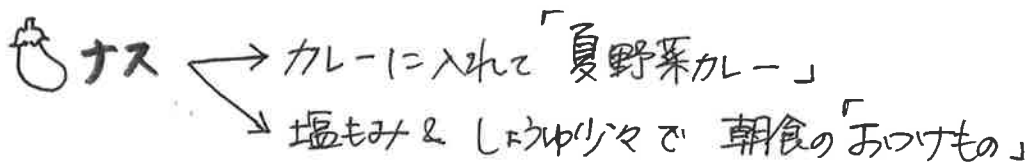 ナス → カレーに入れて「夏野菜カレー」
→ 塩もみ & しょうゆ少々で 朝食の「おつけもの」